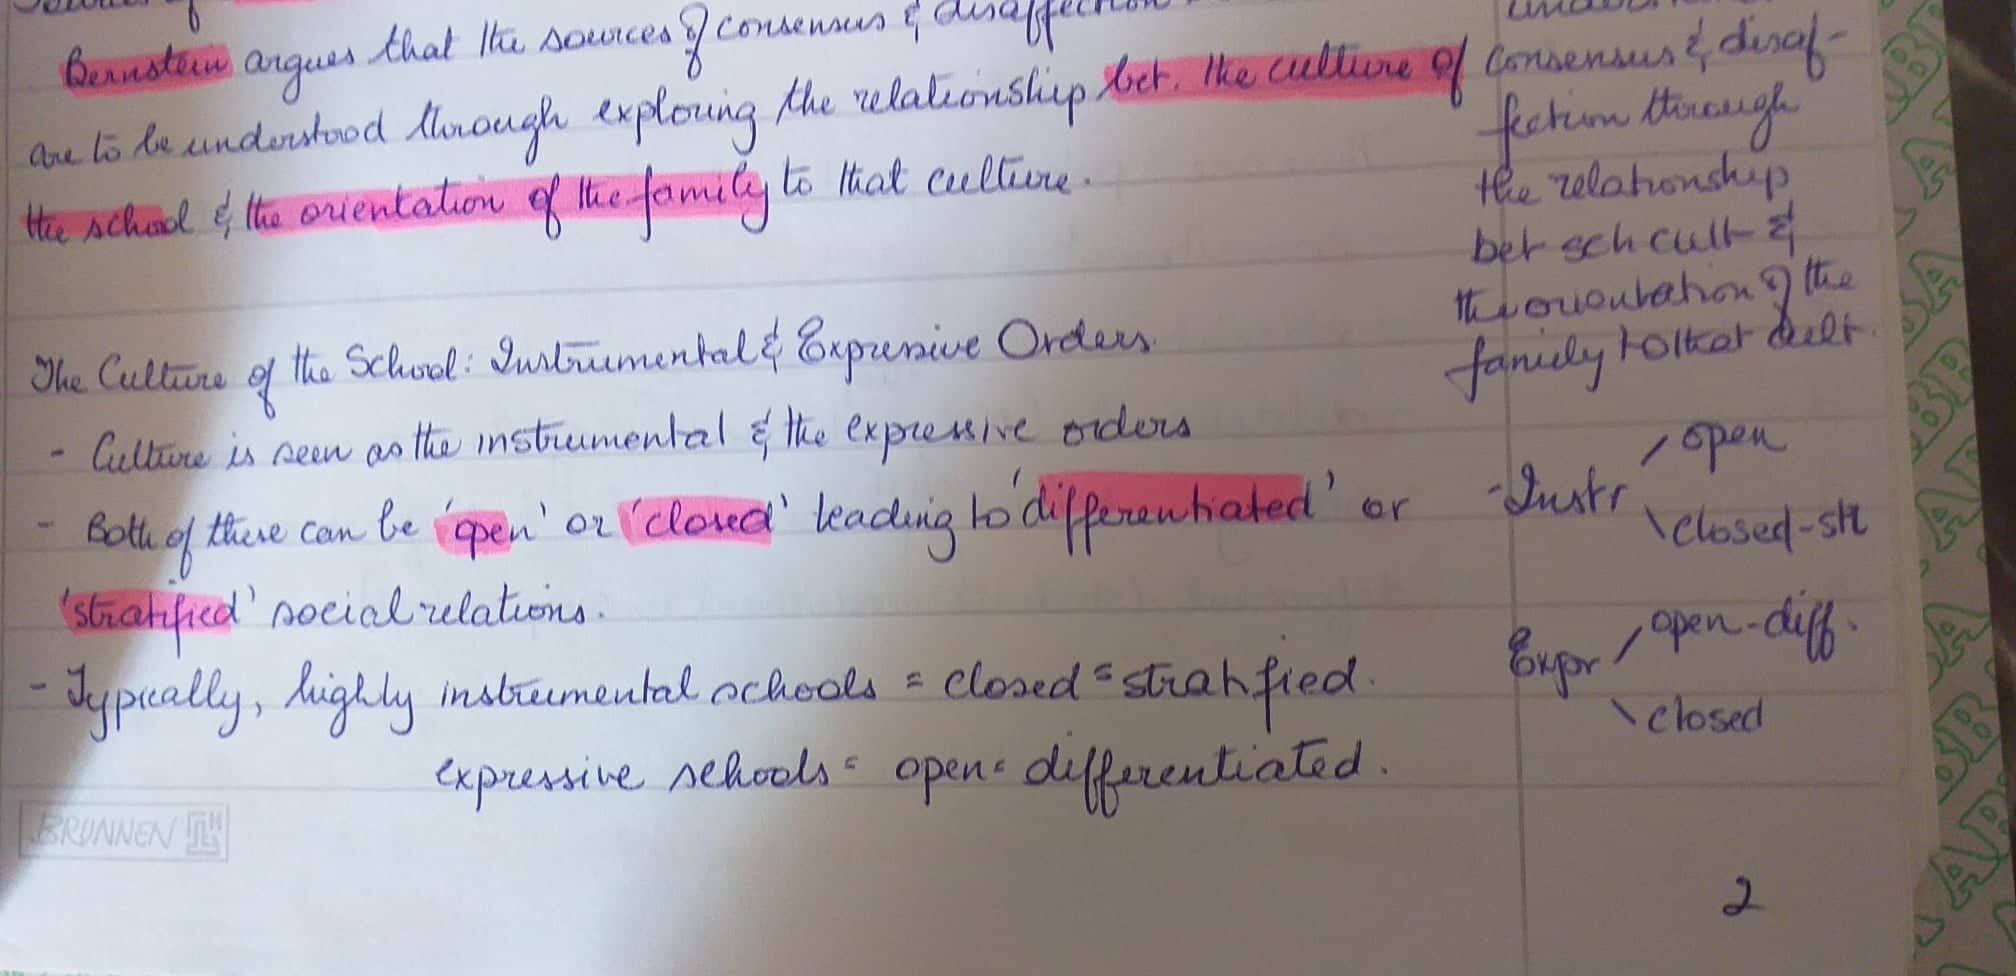 Bernstein argues that the sources of consensus & disaffection
are to be understood through exploring the relationship bet. the culture of
the school & the orientation of the family to that culture.
The Culture of the School: Instrumental & Expressive Orders.
- Culture is seen as the instrumental & the expressive orders
- Both of these can be 'open' or 'closed' leading to 'differentiated' or
'stratified' social relations.
- Typically, highly instrumental schools = closed = stratified.
expressive schools = open = differentiated.
BRUNNEN
consensus & disaf-
fection through
the relationship
bet sch cult &
the orientation of the
family to that cult.
- Instr / open
\ closed - str
Expr / open - diff.
\ closed
2